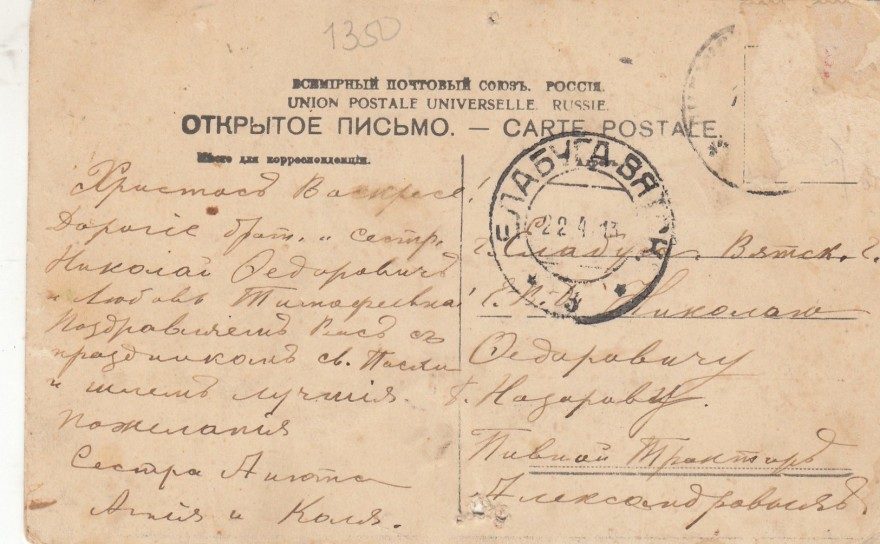 1350
ВСЕМІРНЫЙ ПОЧТОВЫЙ СОЮЗЪ. РОССІЯ.
UNION POSTALE UNIVERSELLE. RUSSIE.
ОТКРЫТОЕ ПИСЬМО. — CARTE POSTALE.
Мѣсто для корреспонденціи.
Христосъ Воскресе!
Дорогіе брат. и сестр.
Николай Ѳедоровичъ
и Любовь Тимофеевна!
Поздравляемъ Васъ съ
праздникомъ св. Пасхи
и шлемъ лучшія
пожелания
Сестра Анюта
и Коля.
ЕЛАБУГА-ВЯТ
22 4 13
г. Елабуга Вятск. г.
Е. В. Б. Николаю
Ѳедоровичу
Назарову.
Пивной Трактиръ
Александровыхъ